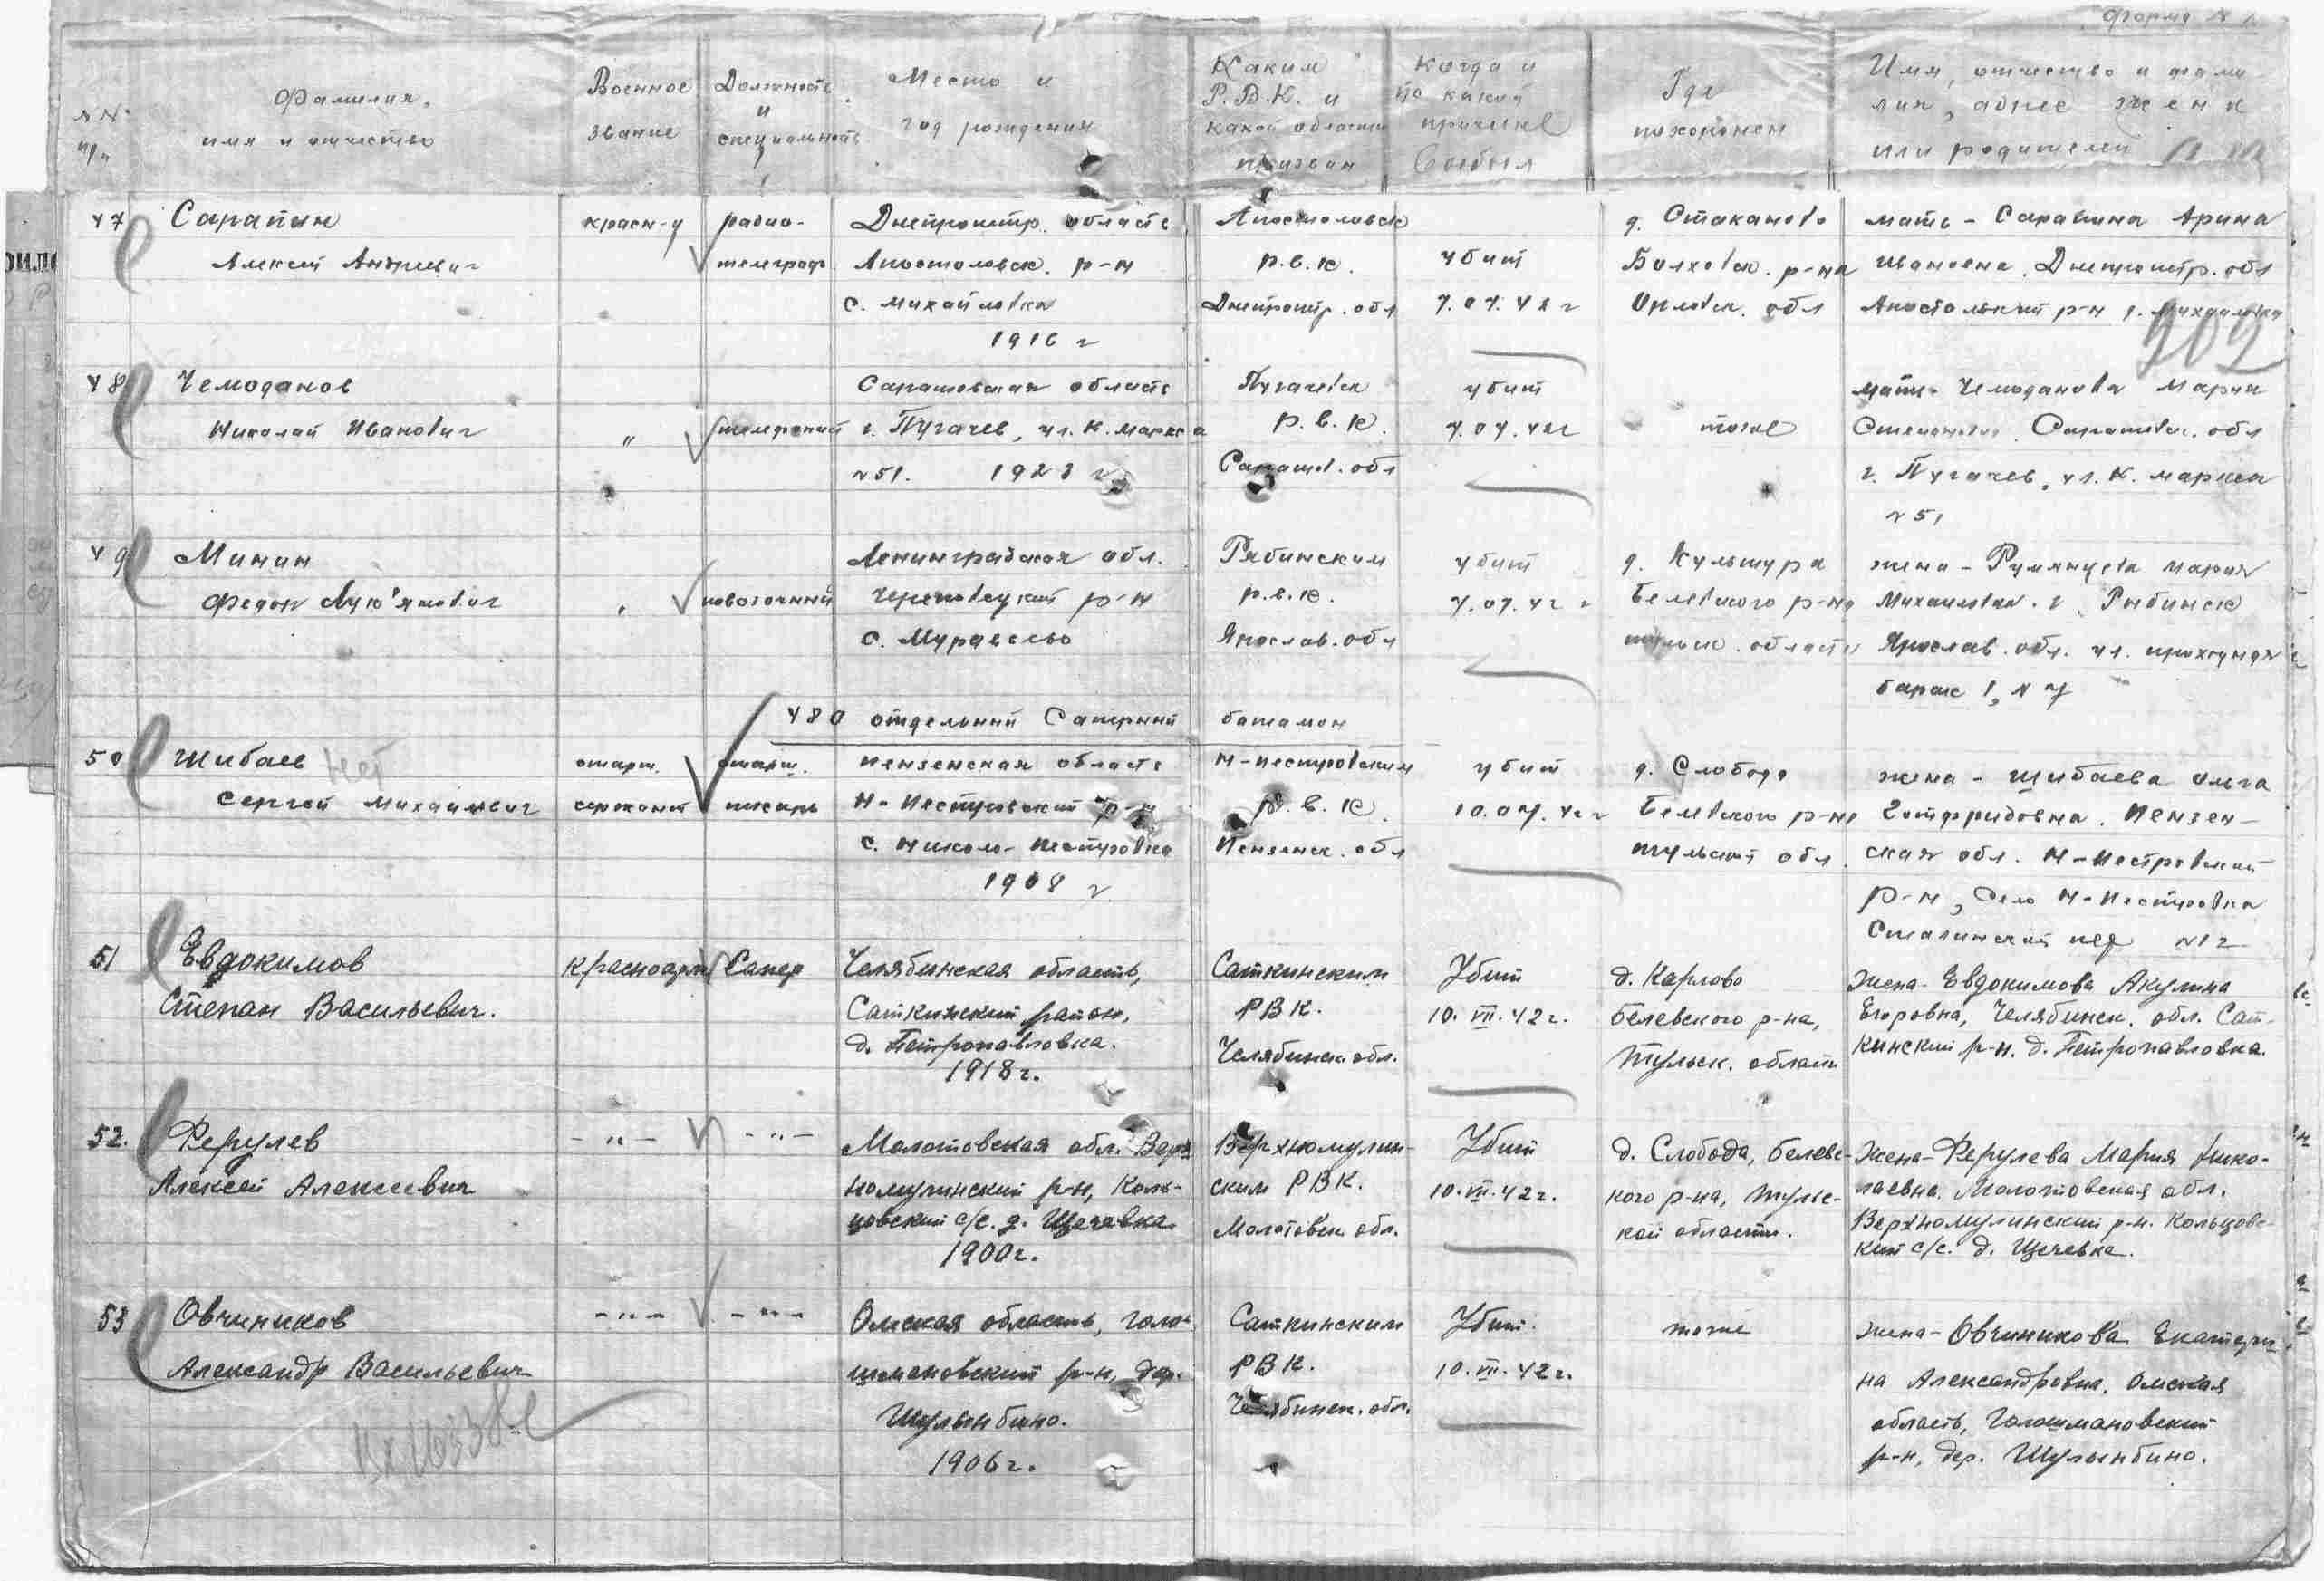 Форма № 1
№ №
пр.
Фамилия,
имя и отчество
Военное
звание
Должность
и
специальность
Место и
год рождения
Каким
Р.В.К. и
какой области
призван
Когда и
по какой
причине
выбыл
Где
похоронен
Имя, отчество и фами-
лия, адрес жен и
или родителей
47
Сарапин
Алексей Андреевич
красн-ц
радио-
телеграф.
Днепропетр. область
Апостоловск. р-н
с. Михайловка
1916 г
Апостоловск
р.в.к.
Днепропетр. обл
убит
7.07.42 г
д. Стаканово
Болховск. р-на
Орловск. обл
мать - Сарапина Арина
Ивановна, Днепропетр. обл
Апостольский р-н с. Михайловка
902
48
Чемоданов
Николай Иванович
"
телефонист
Саратовская область
г. Пугачев, ул. К. Маркса
№51. 1923 г
Пугачевск
р.в.к.
Саратов. обл
убит
7.07.42г
тоже
мать - Чемоданова Мария
Степановна, Саратовск. обл
г. Пугачев, ул. К. Маркса
№51
49
Минин
Федор Лук'янович
"
повозочный
Ленинградская обл.
Череповецкий р-н
с. Муравьево
Рыбинским
р.в.к.
Ярослав. обл
убит
7.07.42 г
д. Культура
Белевского р-на
тульск. области
жена - Румянцева Мария
Михайловна. г. Рыбинск
Ярослав. обл. ул. проходная
барак 1, № 7
480 отдельный Саперный батальон
50
Шибаев нет
Сергей Михайлович
старш.
сержант
старш.
писарь
Пензенская область
Н-Пестровский р-н
с. Николо-Пестровка
1908 г
Н-Пестровским
р.в.к.
Пензенск. обл
убит
10.07.42 г
д. Слобода
Белевского р-на
тульской обл.
жена - Шибаева Ольга
Готфридовна. Пензен-
ская обл. Н-Пестровский
р-н, село Н-Пестровка
Сталинский пер №12
51
Евдокимов
Степан Васильевич.
Красноарм
Сапер
Челябинская область,
Саткинский район,
д. Петропавловка.
1918г.
Саткинским
РВК.
Челябинск обл.
Убит
10.VII.42г.
д. Карлово
Белевского р-на,
Тульск. области
Жена - Евдокимова Акулина
Егоровна, Челябинск. обл. Сат-
кинский р-н. д. Петропавловка.
52.
Ферулев
Алексей Алексеевич
-"-
-"-
Молотовская обл. Верх
немулинский р-н, Коль-
цовский с/с. д. Щечевка
1900г.
Верхнемулин-
ским РВК.
Молотовск обл.
Убит
10.VII.42г.
д. Слобода, Белевс-
кого р-на, Тульс-
кой области.
Жена - Ферулева Мария Нико-
лаевна. Молотовская обл.
Верхнемулинский р-н. Кольцовс-
кий с/с. д. Щечевка.
53
Овчиников
Александр Васильевич
-"-
-"-
Омская область, Голо-
шмановский р-н, дер.
Шулынбино.
1906г.
Саткинским
РВК.
Челябинск. обл.
Убит.
10.VII.42г.
тоже
жена - Овчиникова Екатери-
на Александровна. Омская
область, Голошмановский
р-н, дер. Шулынбино.